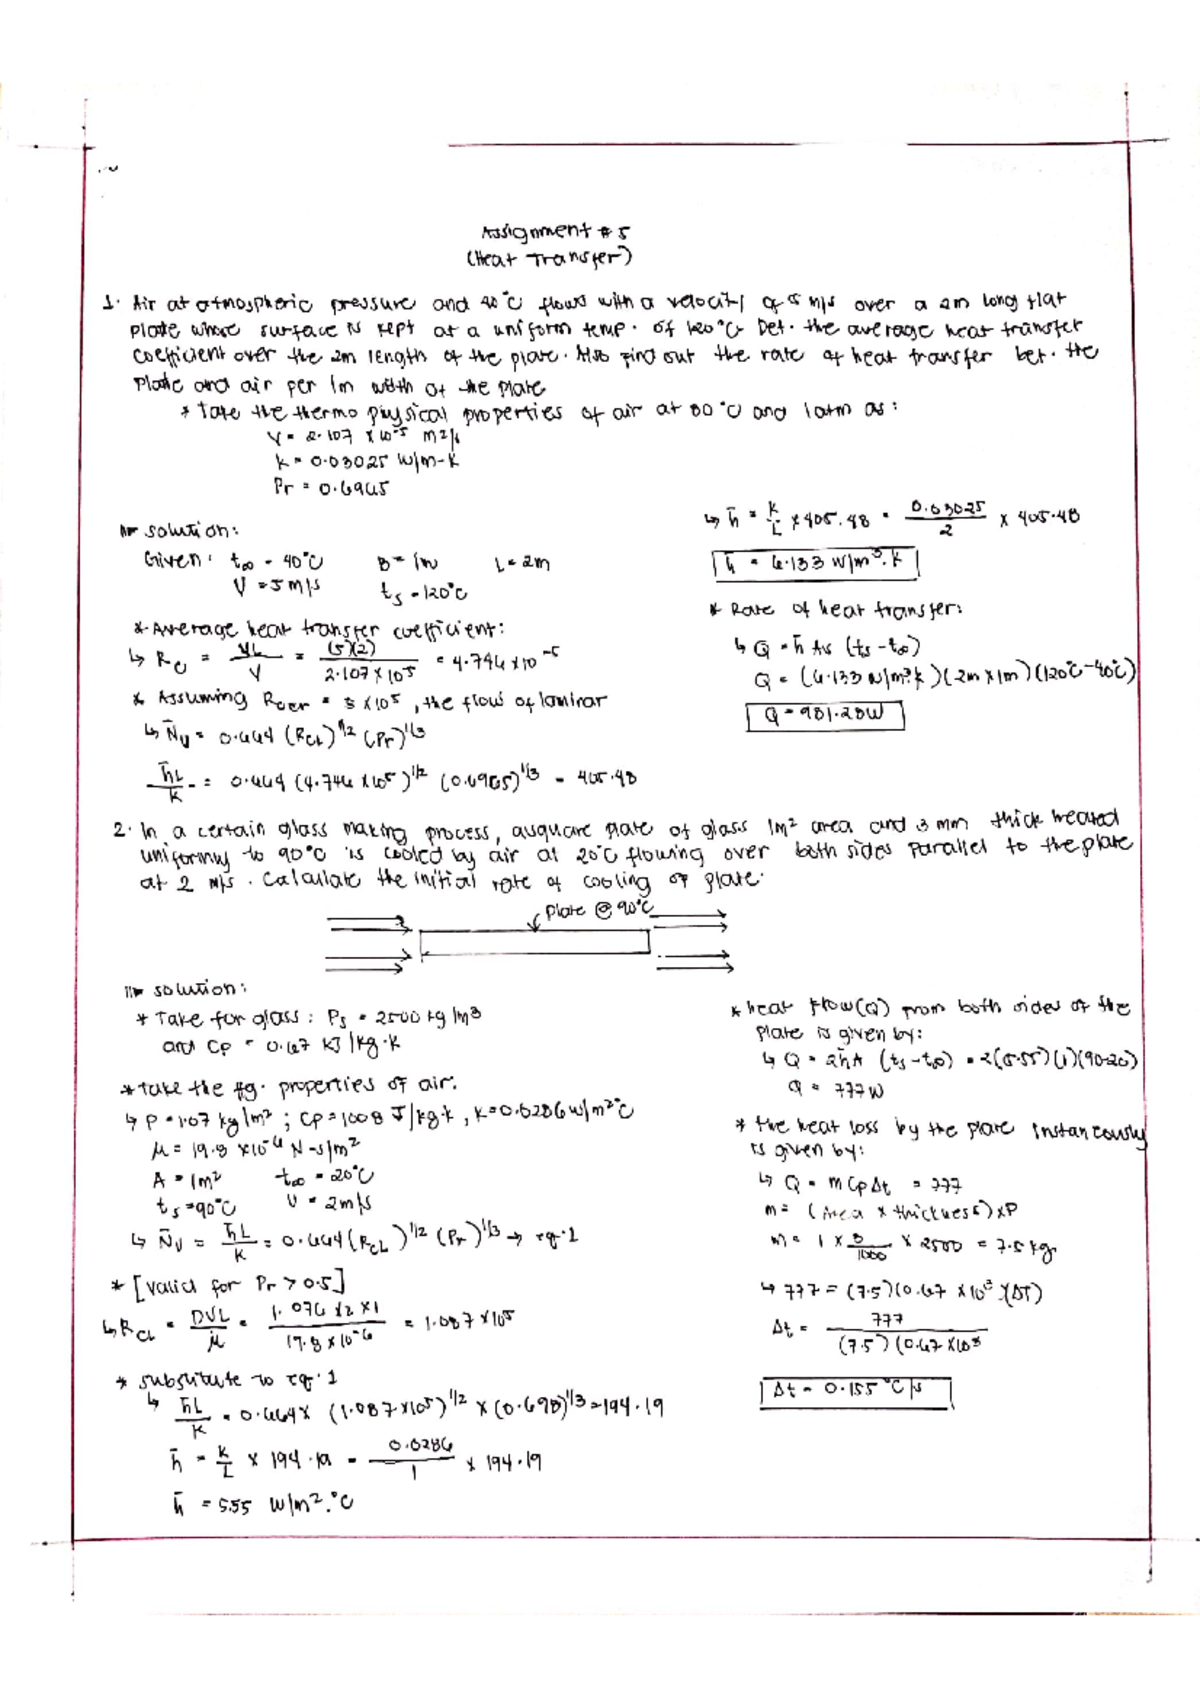 Assignment # 5
(Heat Transfer)
1. Air at atmospheric pressure and 40°C flows with a velocity of 5 m/s over a 2m long flat
plate whose surface is kept at a uniform temp. of 120°C. Det. the average heat transfer
coefficient over the 2m length of the plate. Also find out the rate of heat transfer bet. the
plate and air per 1m width of the plate
* Take the thermo physical properties of air at 80°C and 1atm as:
V = 2.107 x 10⁻⁵ m²/s
k = 0.03025 W/m-K
Pr = 0.6965
solution:
Given: t∞ = 40°C B = 1m L = 2m
V = 5 m/s ts = 120°C
* Average heat transfer coefficient:
↳ Re = VL/V = (5)(2)/2.107 x 10⁵ = 4.746 x 10⁻⁵
* Assuming Recr = 5 x 10⁵, the flow of laminar
↳ N̄u = 0.664 (ReL)^1/2 (Pr)^1/3
h̄L/k = 0.664 (4.746 x 10⁵)^1/2 (0.6965)^1/3 = 405.48
↳ h̄ = k/L x 405.48 = 0.03025/2 x 405.48
h̄ = 6.133 W/m³.k
* Rate of heat transfer:
↳ Q = h̄ As (ts - t∞)
Q = (6.133 W/m³k)(2m x 1m)(120°C - 40°C)
Q = 981.28W
2. In a certain glass making process, a square plate of glass 1m² area and 3 mm thick heated
uniformly to 90°C is cooled by air at 20°C flowing over both sides parallel to the plate
at 2 m/s. Calculate the initial rate of cooling of plate.
plate @ 90°C
solution:
* Take for glass: Ps = 2500 kg/m³
and Cp = 0.67 KJ/kg.k
* Take the fg. properties of air.
↳ P = 1.07 kg/m²; Cp = 1008 J/kg.k, K = 0.0286 W/m²°C
μ = 19.8 x 10⁻⁶ N-s/m²
A = 1m² t∞ = 20°C
ts = 90°C U = 2m/s
↳ N̄u = h̄L/k = 0.664 (ReL)^1/2 (Pr)^1/3 → eq. 1
* [valid for Pr > 0.5]
↳ ReL = DVL/μ = 1.076 x 2 x 1/19.8 x 10⁻⁶ = 1.087 x 10⁵
* substitute to eq. 1
↳ h̄L/k = 0.664 x (1.087 x 10⁵)^1/2 x (0.698)^1/3 = 194.19
h̄ = k/L x 194.19 = 0.0286/1 x 194.19
h̄ = 5.55 W/m².°C
* heat flow (Q) from both sides of the
plate is given by:
↳ Q = 2h̄A (ts - t∞) = 2(5.55)(1)(90-20)
Q = 777 W
* the heat loss by the plate instancously
is given by:
↳ Q = m Cp Δt = 777
m = (Area x thickness) x P
m = 1 x 3/1000 x 2500 = 7.5 kg.
↳ 777 = (7.5)(0.67 x 10³)(ΔT)
Δt = 777/(7.5)(0.67 x 10³
Δt = 0.155 °C/s